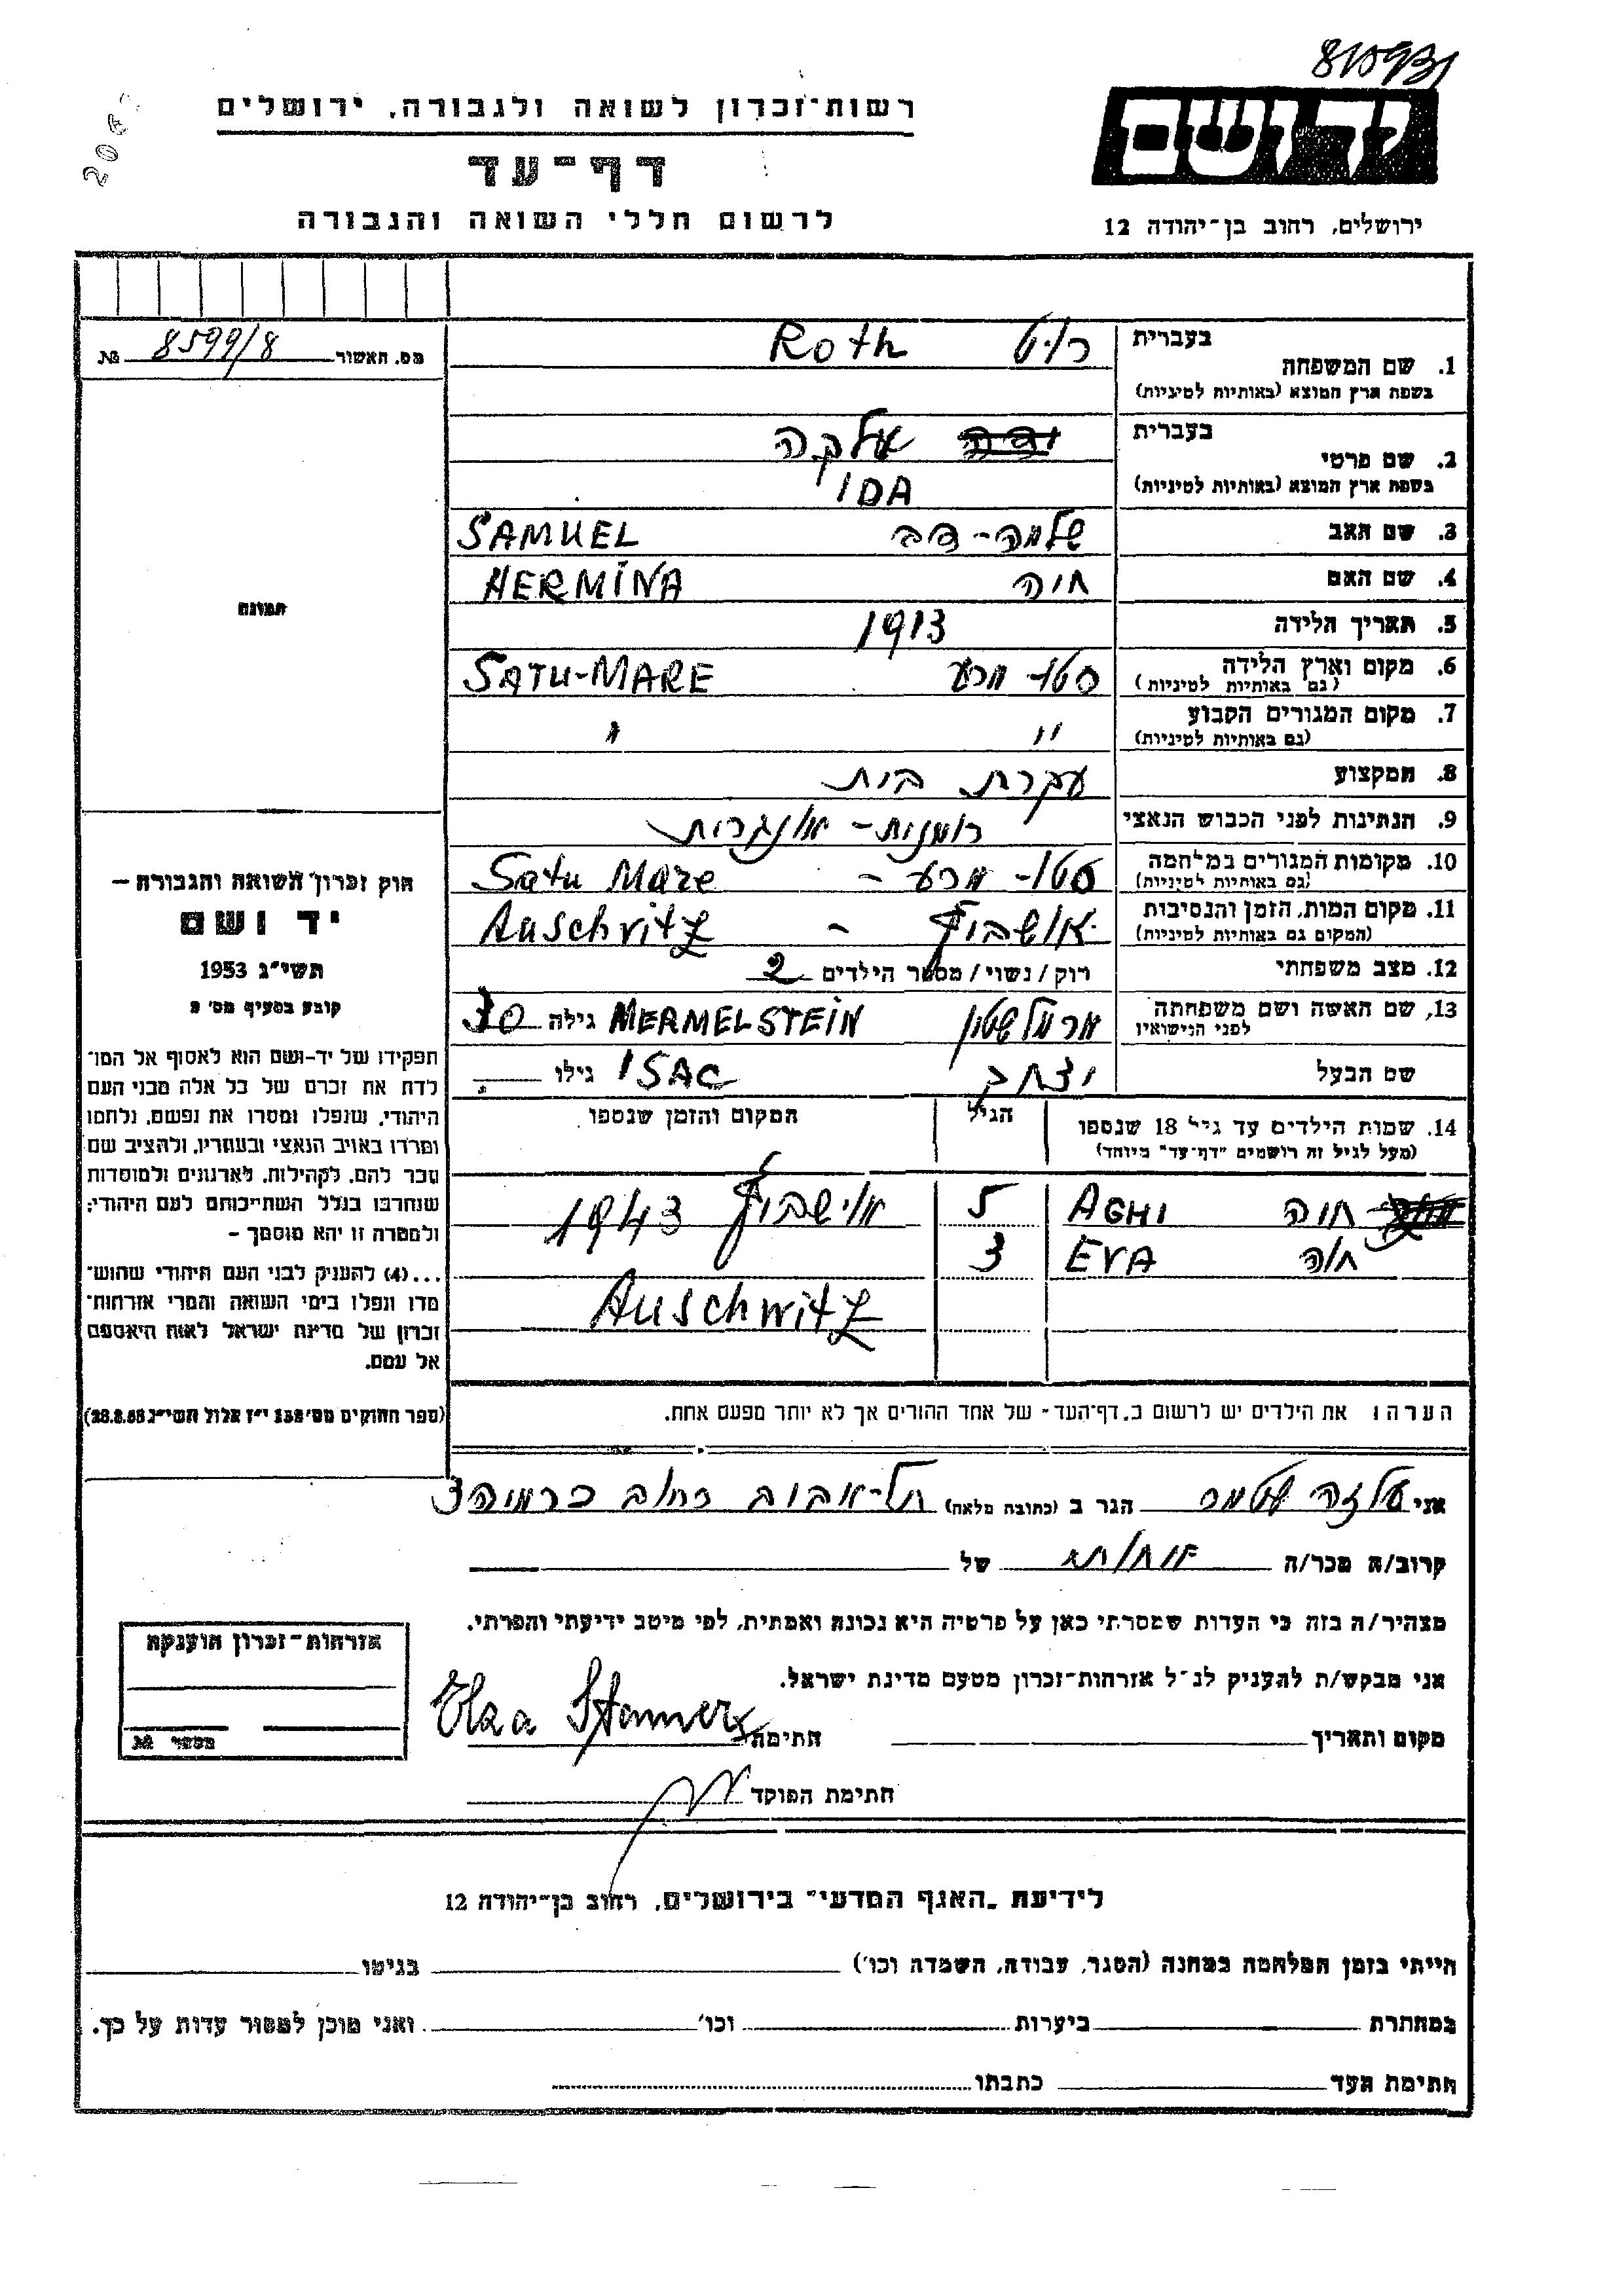 רשות-זכרון לשואה ולגבורה, ירושלים
דף-עד
לרשום חללי השואה והגבורה
יד ושם
ירושלים, רחוב בן-יהודה 12
מס. האשור 8599/8 №
1. שם המשפחה
בעברית
רוט Roth
בשפת ארץ המוצא (באותיות לטיניות)
2. שם פרטי
בעברית
אלקה
בשפת ארץ המוצא (באותיות לטיניות)
IDA
3. שם האב שלמה-דב SAMUEL
4. שם האם חוה HERMINA
5. תאריך הלידה 1913
6. מקום וארץ הלידה סטו-מרע SATU-MARE
(גם באותיות לטיניות)
7. מקום המגורים הקבוע " "
(גם באותיות לטיניות)
8. המקצוע עקרת בית
9. הנתינות לפני הכבוש הנאצי רומנית-אונגרית
10. מקומות המגורים במלחמה סטו-מרע - Satu Mare
(גם באותיות לטיניות)
11. מקום המות, הזמן והנסיבות אושביץ - Auschwitz
(המקום גם באותיות לטיניות)
12. מצב משפחתי רוק/נשוי/מספר הילדים 2
13. שם האשה ושם משפחתה מרמלשטין MERMELSTEIN גילה 30
לפני הנישואין
שם הבעל יצחק ISAC גילו
14. שמות הילדים עד גיל 18 שנספו הגיל המקום והזמן שנספו
(מעל לגיל זה רושמים "דף-עד" מיוחד)
חוה AGHI 5 אושביץ 1943
חוה EVA 3
Auschwitz
הערה: את הילדים יש לרשום ב"דף-העד" של אחד ההורים אך לא יותר מפעם אחת.
תמונה
חוק זכרון השואה והגבורה –
יד ושם
תשי"ג 1953
קובע בסעיף מס' 2
תפקידו של יד-ושם הוא לאסוף אל המו־
לדת את זכרם של כל אלה מבני העם
היהודי, שנפלו ומסרו את נפשם, נלחמו
ומרדו באויב הנאצי ובעוזריו, ולהציב שם
וזכר להם, לקהילות, לארגונים ולמוסדות
שנחרבו בגלל השתייכותם לעם היהודי;
ולמטרה זו יהא מוסמך –
...(4) להעניק לבני העם היהודי שהוש־
מדו ונפלו בימי השואה והמרי אזרחות־
זכרון של מדינת ישראל לאות היאספם
אל עמם.
(ספר החוקים מס' 132 י"ז אלול תשי"ג 28.8.53)
אני עלזה שטמר הגר ב (כתובה מלאה) תל-אביב רחוב 3
קרוב/ה מכר/ה אחות של
מצהיר/ה בזה כי העדות שמסרתי כאן על פרטיה היא נכונה ואמתית, לפי מיטב ידיעתי והכרתי.
אני מבקש/ת להעניק לנ"ל אזרחות-זכרון מטעם מדינת ישראל.
מקום ותאריך חתימה Elza Stamer
חתימת הפוקד
אזרחות-זכרון הוענקה
מספר №
לידיעת "האגף המדעי" בירושלים, רחוב בן-יהודה 12
הייתי בזמן המלחמה במחנה (הסגר, עבודה, השמדה וכו') בגיטו
במחתרת ביערות וכו' ואני מוכן למסור עדות על כך.
חתימת העד כתבתו